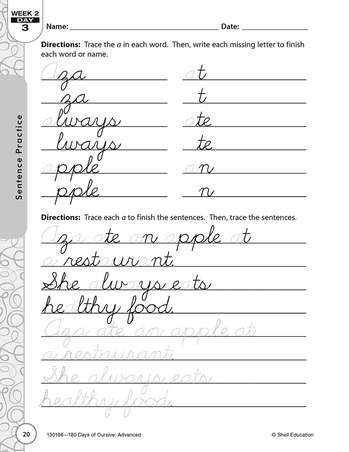 WEEK 2
DAY
3
Name: Date:
Directions: Trace the a in each word. Then, write each missing letter to finish
each word or name.
Aza at
za t
always ate
lways te
apple an
pple n
Directions: Trace each a to finish the sentences. Then, trace the sentences.
Aza ate an apple at
a restaurant.
She always eats
healthy food.
Aza ate an apple at
a restaurant.
She always eats
healthy food.
Sentence Practice
20
130196—180 Days of Cursive: Advanced
© Shell Education